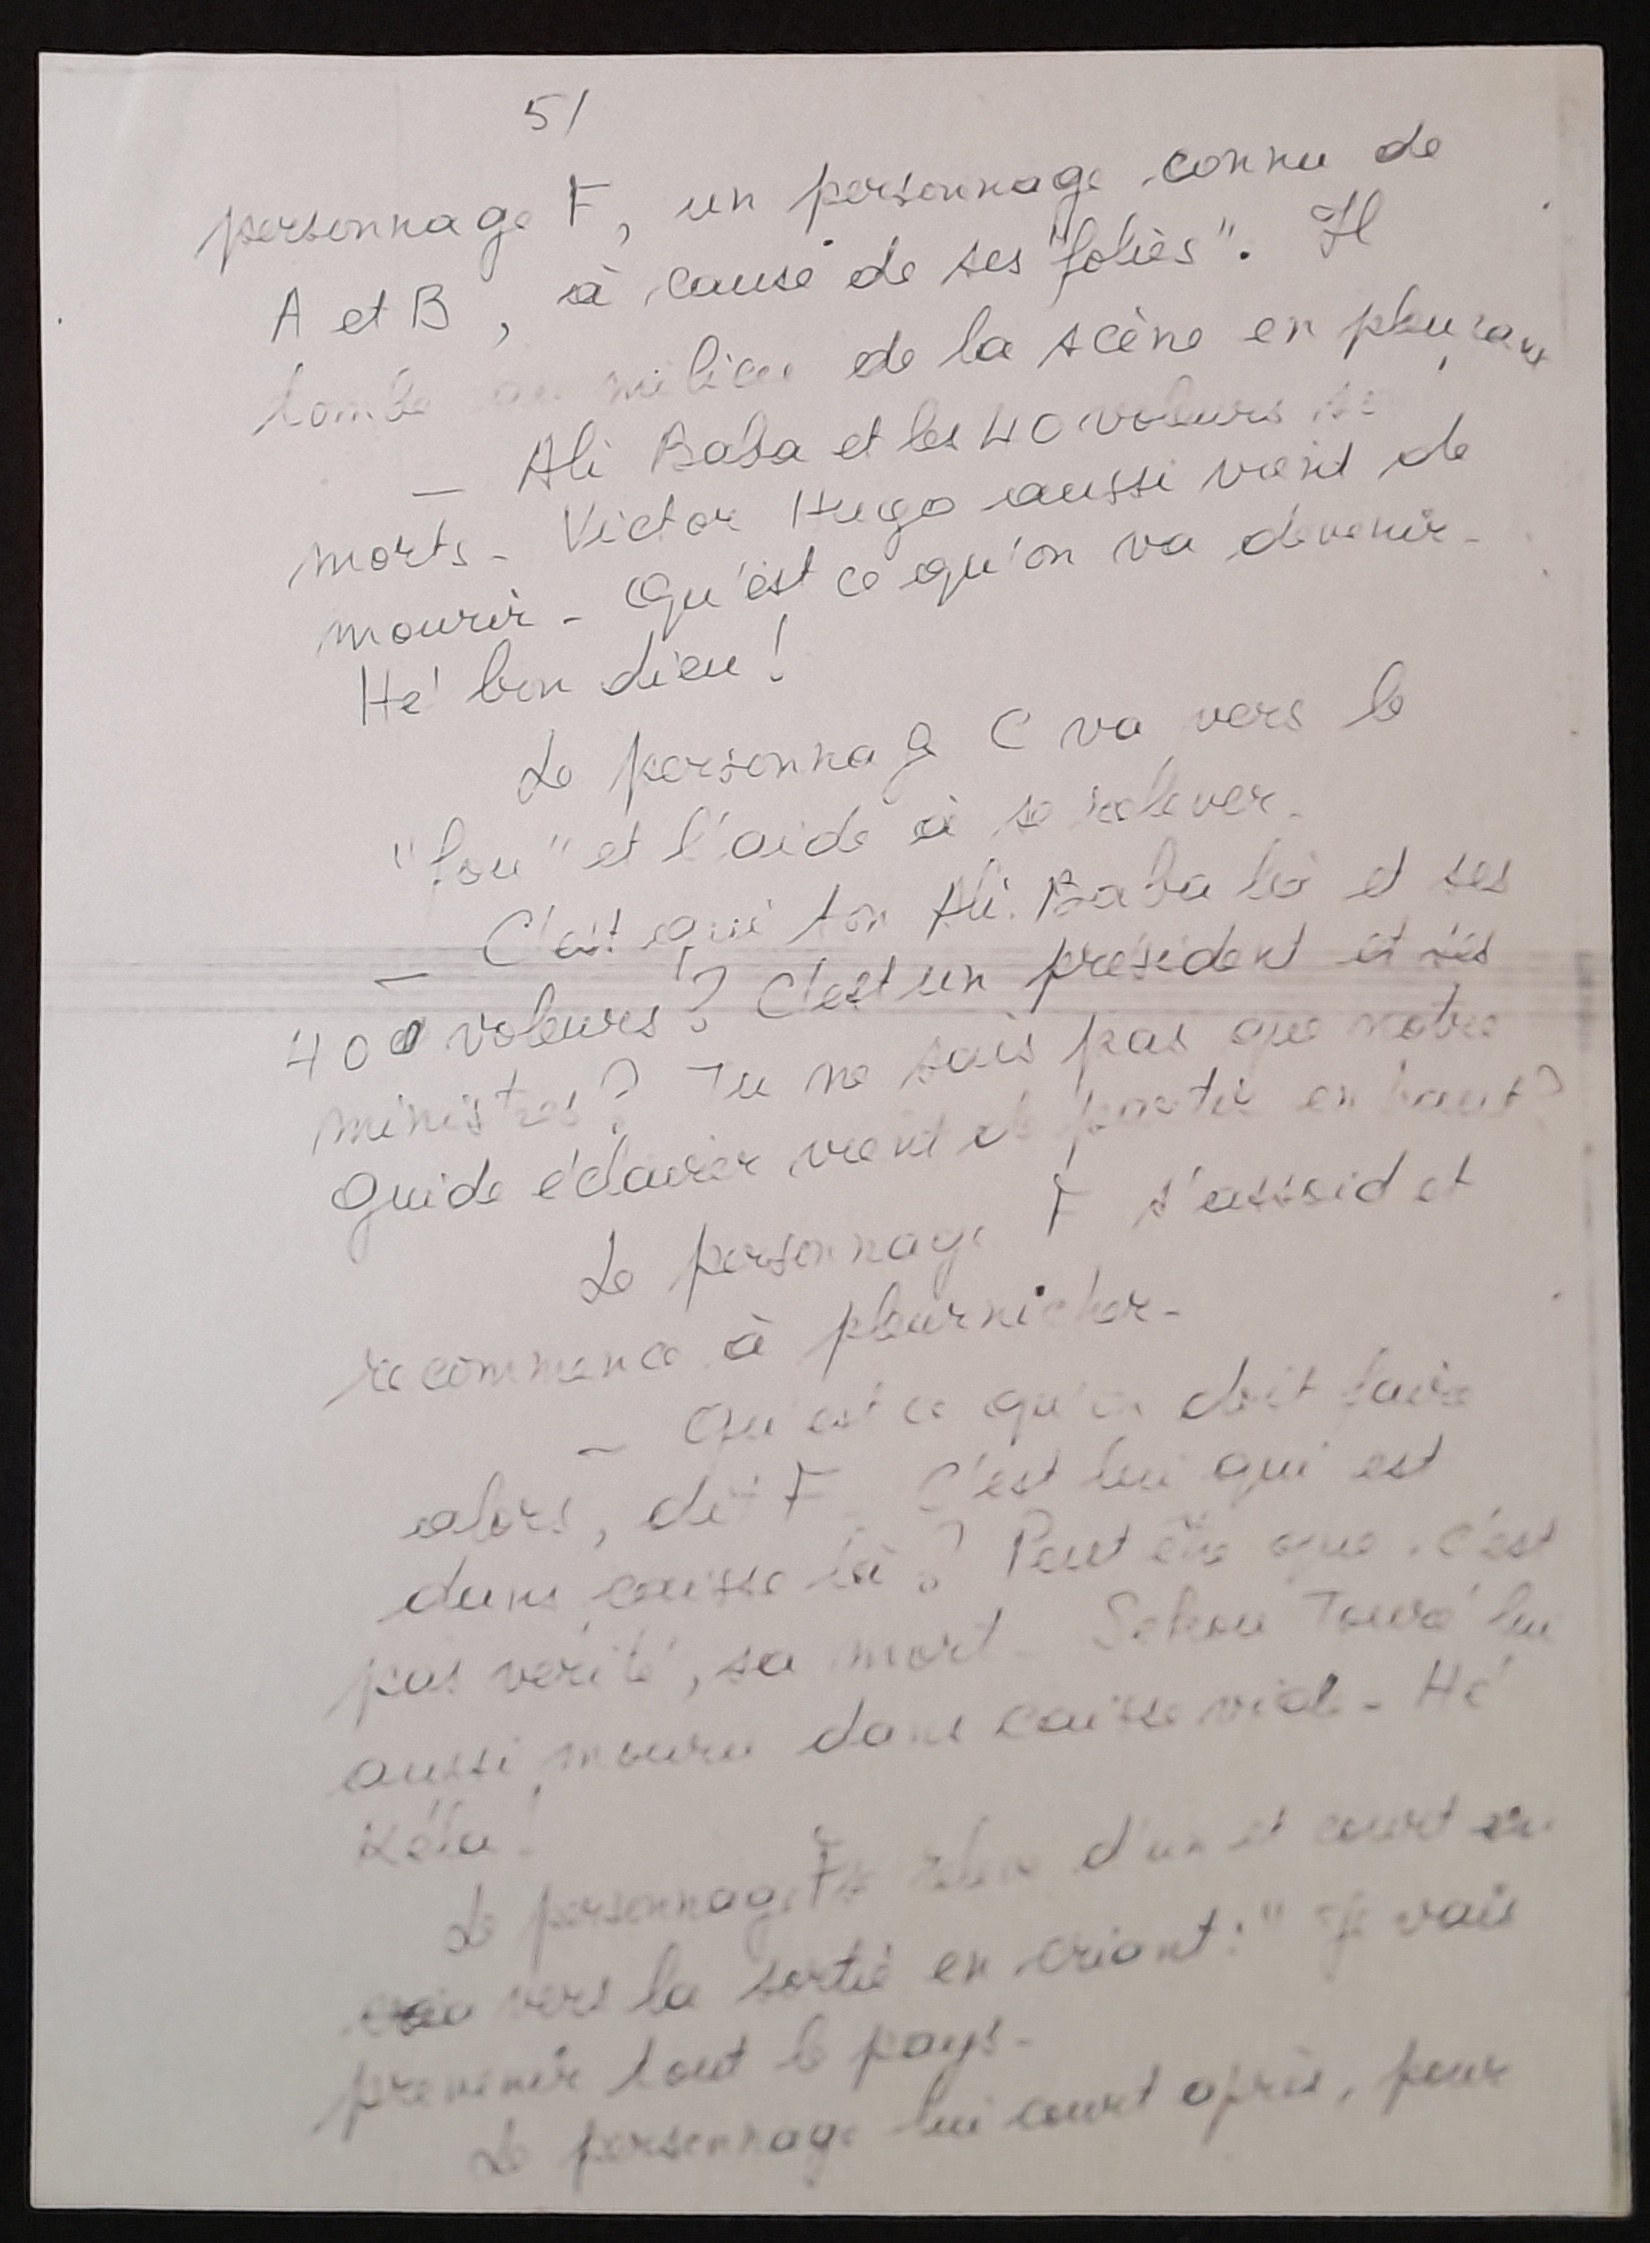 5/
personnage F, un personnage connu de
A et B, à cause de ses "folies". Il
tombe au milieu de la scène en pleurant
— Ali Baba et les 40 voleurs
morts - Victor Hugo aussi vient de
mourir - Qu'est ce qu'on va devenir -
Hé bon dieu !
Le personnage C va vers le
"fou" et l'aide à se relever.
— C'est qui ton Ali Baba là et ses
400 voleurs ? C'est un président et ses
ministres ? Tu ne sais pas que notre
Guide éclairer vient de partir en haut ?
Le personnage F s'assoid et
recommence à pleurnicher -
— Qu'est ce qu'on doit faire
alors, dit F. C'est lui qui est
dans caisse là ? Peut être que c'est
pas vérité, sa mort - Sekou Touré lui
aussi mouru dans caisse vide - Hé
Kéla !
Le personnage F se relève d'un et court
vers la sortie en criant : "Je vais
prevenir tout le pays -
Le personnage lui court après, pour